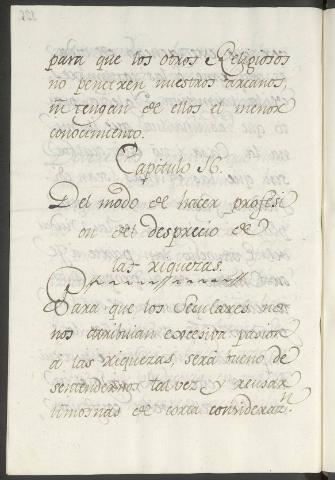 para que los otros Religiosos
no penetren nuestros arcanos,
ni tengan de ellos el menor
conocimiento.
Capitulo 16.
Del modo de hacer profesi
on del desprecio de
las riquezas.
Para que los Seculares no
nos atribuian excesiva pasion
à las riquezas, será bueno de
sentendernos tal vez y reusar
limosnas de corta consideraz.n